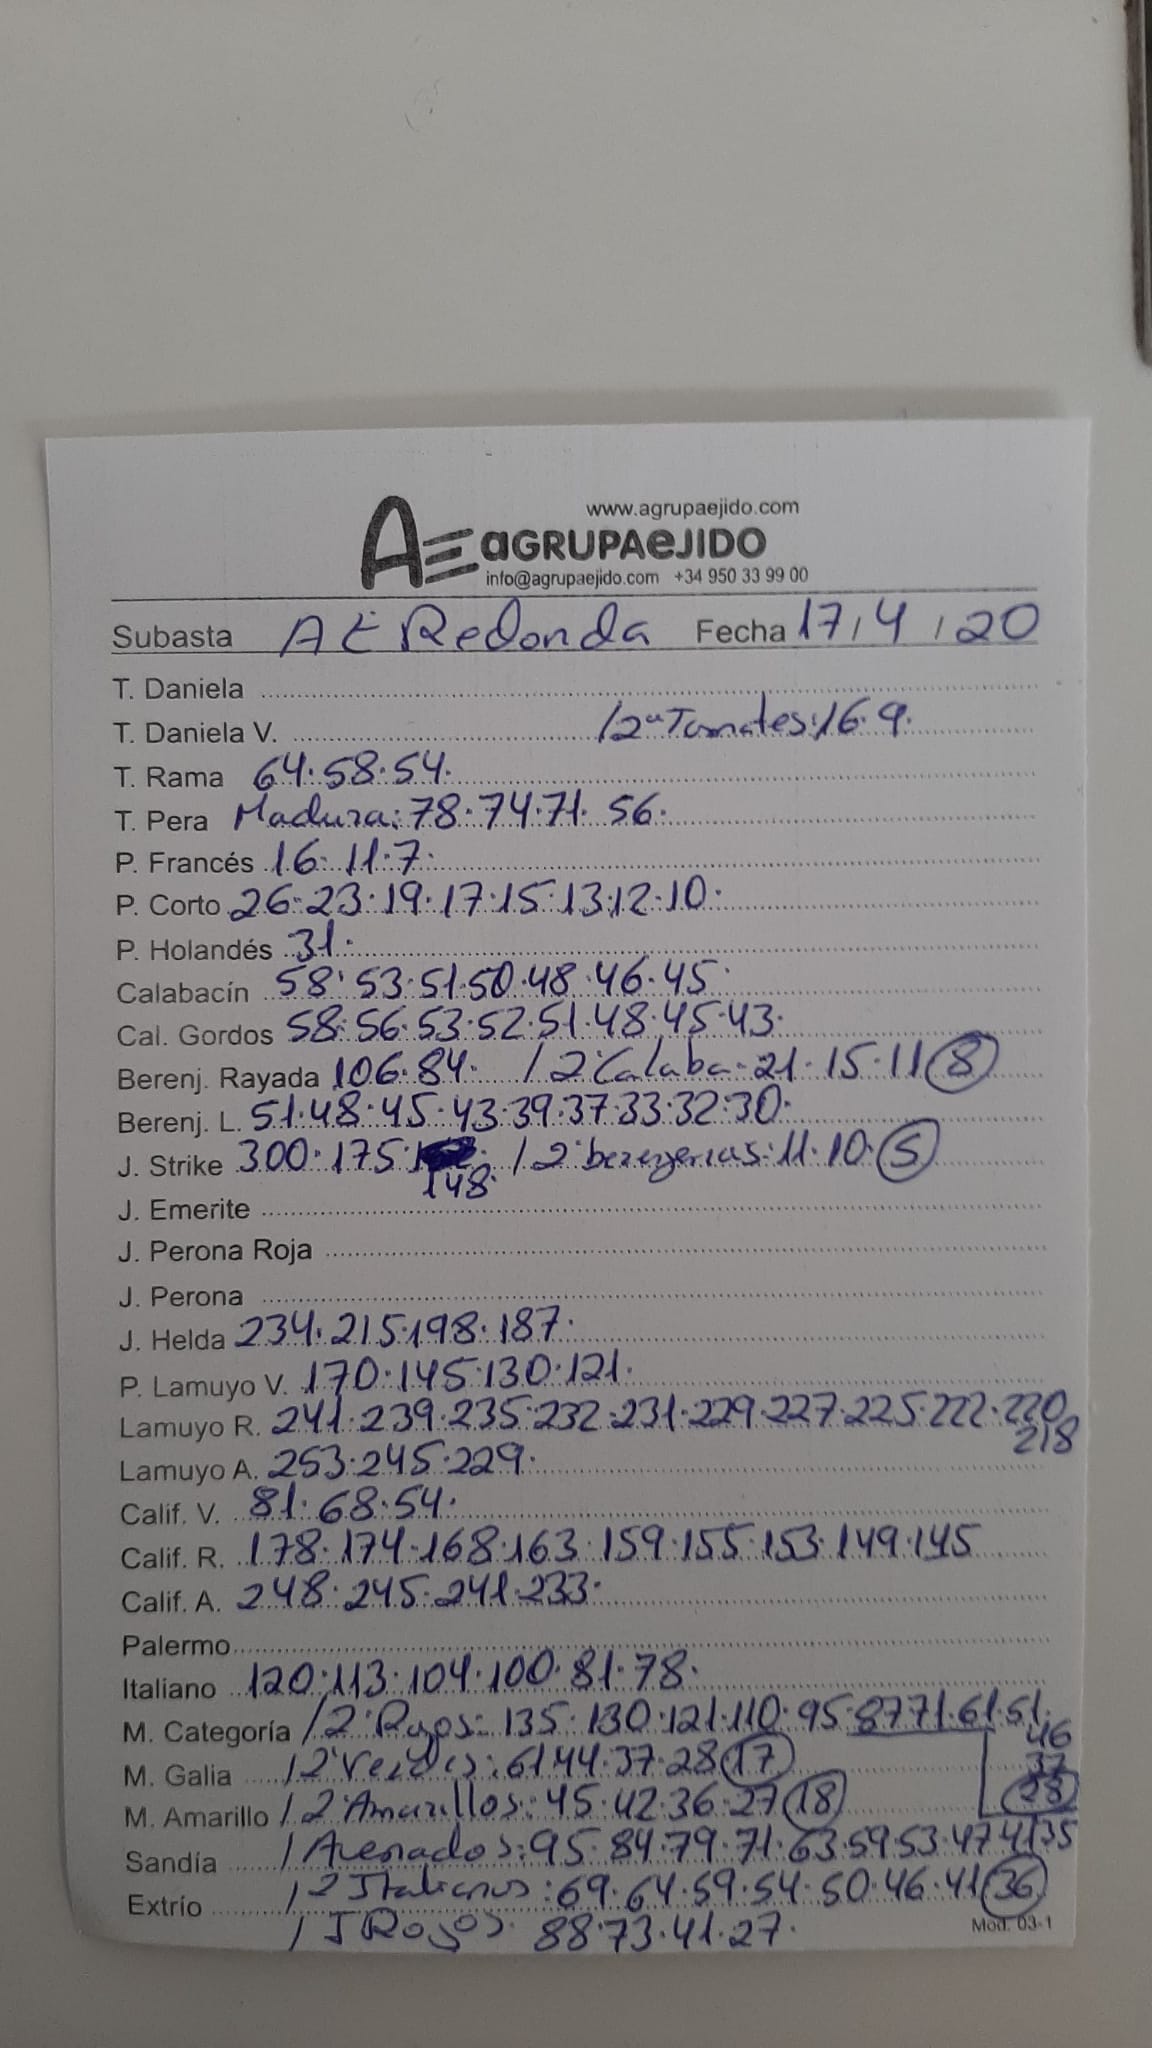 www.agrupaejido.com
AE aGRUPAeJIDO
info@agrupaejido.com +34 950 33 99 00
Subasta AE Redonda Fecha 17/4/20
T. Daniela
T. Daniela V. /2ª Tomates: 16·9·
T. Rama 64·58·54·
T. Pera Madura: 78·74·71·56·
P. Francés 16·11·7·
P. Corto 26·23·19·17·15·13·12·10·
P. Holandés 31·
Calabacín 58·53·51·50·48·46·45·
Cal. Gordos 58·56·53·52·51·48·45·43·
Berenj. Rayada 106·84· /2ª Calaba·21·15·11 8
Berenj. L. 51·48·45·43·39·37·33·32·30·
J. Strike 300·175· /2ª berenjenas: 11·10· 5
148·
J. Emerite
J. Perona Roja
J. Perona
J. Helda 234·215·198·187·
P. Lamuyo V. 170·145·130·121·
Lamuyo R. 241·239·235·232·231·229·227·225·222·220
218
Lamuyo A. 253·245·229·
Calif. V. 81·68·54·
Calif. R. 178·174·168·163·159·155·153·149·145
Calif. A. 248·245·241·233·
Palermo
Italiano 120·113·104·100·81·78·
M. Categoría /2ª Rojos: 135·130·121·110·95·87·71·61·51·
46
M. Galia /2ª Verdes: 61·44·37·28 17 37
M. Amarillo /2ª Amarillos: 45·42·36·27 18 28
Sandía / Asenados: 95·84·79·71·63·59·53·47·41·35
Extrío /2 Italianos: 69·64·59·54·50·46·41 36
/J Rojos· 88·73·41·27·
Mod. 03-1